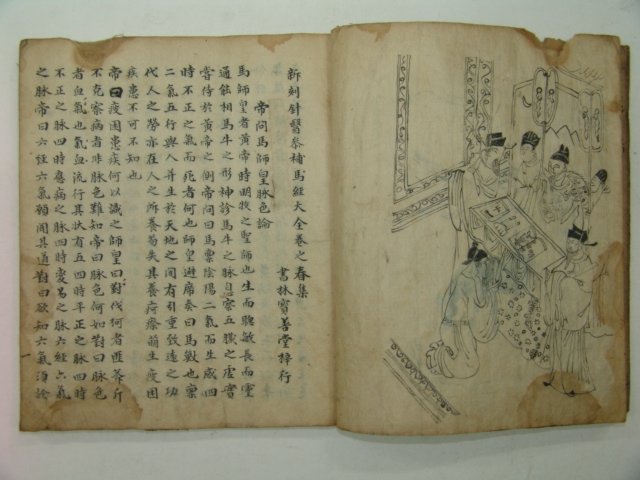 新刻針醫參補馬經大全卷之春集
書林寶善堂梓行
帝問馬師皇脉色論
馬師皇者黄帝時明牧之聖師也生而聰敏長而靈
通能相馬牛之形神診馬牛之脉息察五臓之虚實
嘗侍於黄帝之側帝問曰馬禀陰陽二氣而生咸四
時不正之氣而死者何也師皇避席奏曰馬獸也禀
二氣五行與人並生於天地之間有引重致遠之功
代人之勞亦在人之所養苟失其養疴瘵萌生疲困
疾患不可不知也
帝曰疲困患疾何以識之師皇曰對伐何者匪斧斤
不克察病者非脉色難知帝曰脉色何如對曰脉色
者血氣也氣血流行其狀有五四時平正之脉四時
不正之脉四時應病之脉四時變易之脉六經六氣
之脉帝曰六經六氣願聞其道對曰欲知六氣須診